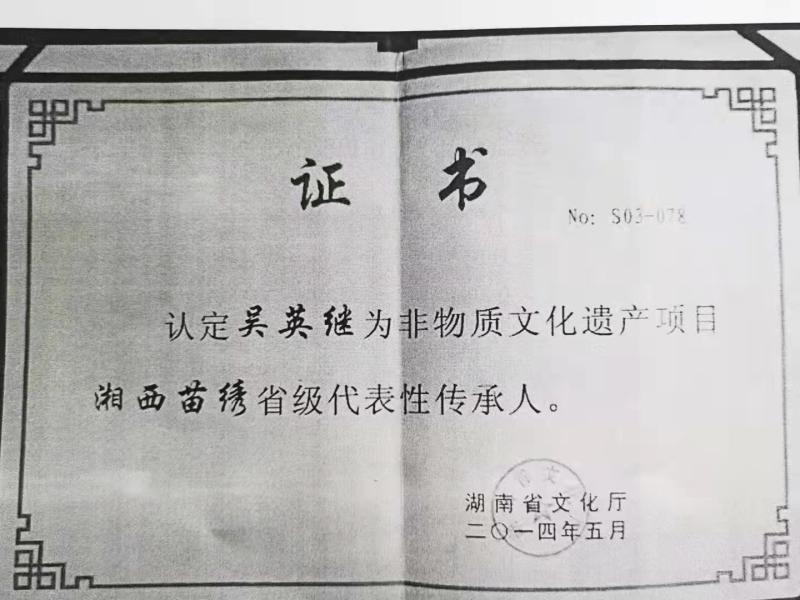 证 书
No: S03-078
认定吴英继为非物质文化遗产项目
湘西苗绣省级代表性传承人。
湖南省文化厅
二〇一四年五月